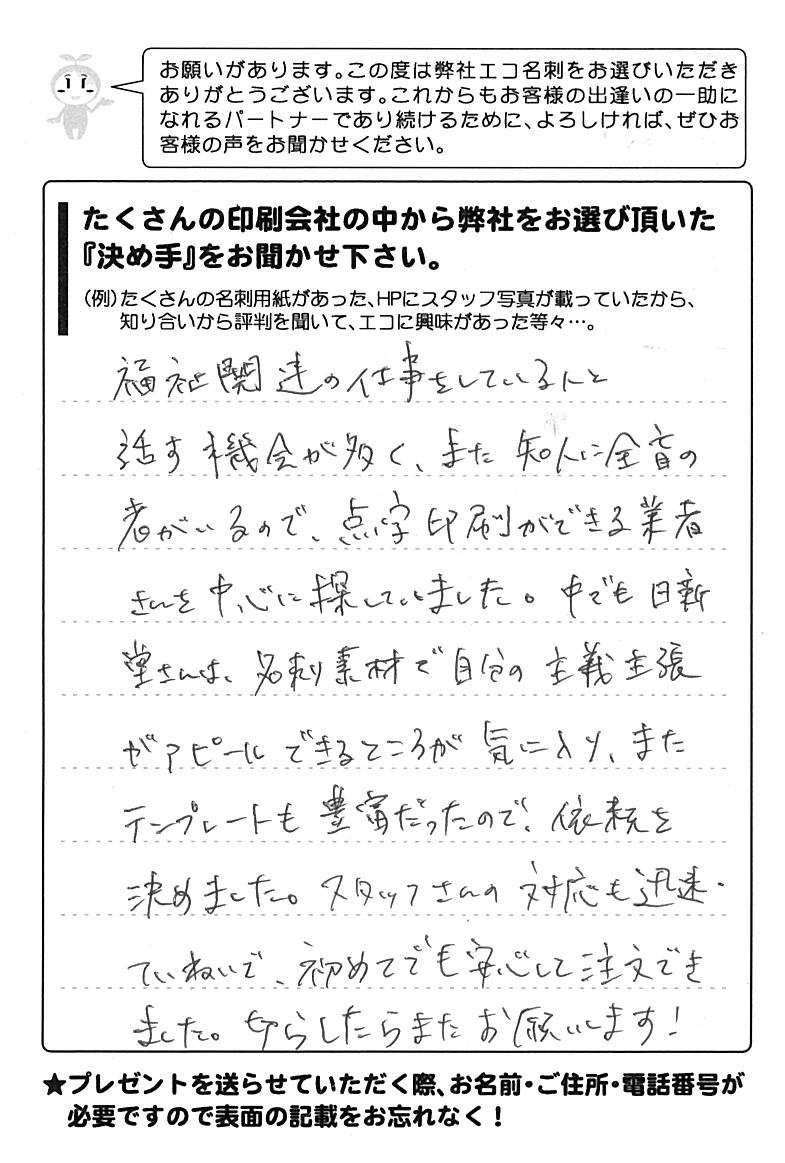 お願いがあります。この度は弊社エコ名刺をお選びいただき
ありがとうございます。これからもお客様の出逢いの一助に
なれるパートナーであり続けるために、よろしければ、ぜひお
客様の声をお聞かせください。
たくさんの印刷会社の中から弊社をお選び頂いた
『決め手』をお聞かせ下さい。
(例)たくさんの名刺用紙があった、HPにスタッフ写真が載っていたから、
知り合いから評判を聞いて、エコに興味があった等々…。
福祉関連の仕事をしている人と
話す機会が多く、また知人に全盲の
者がいるので、点字印刷ができる業者
さんを中心に探していました。中でも日新
堂さんは、名刺素材で自分の主義主張
がアピールできるところが気に入り、また
テンプレートも豊富だったので、依頼を
決めました。スタッフさんの対応も迅速・
ていねいで、初めてでも安心して注文でき
ました。切らしたらまたお願いします!
★プレゼントを送らせていただく際、お名前・ご住所・電話番号が
必要ですので表面の記載をお忘れなく!